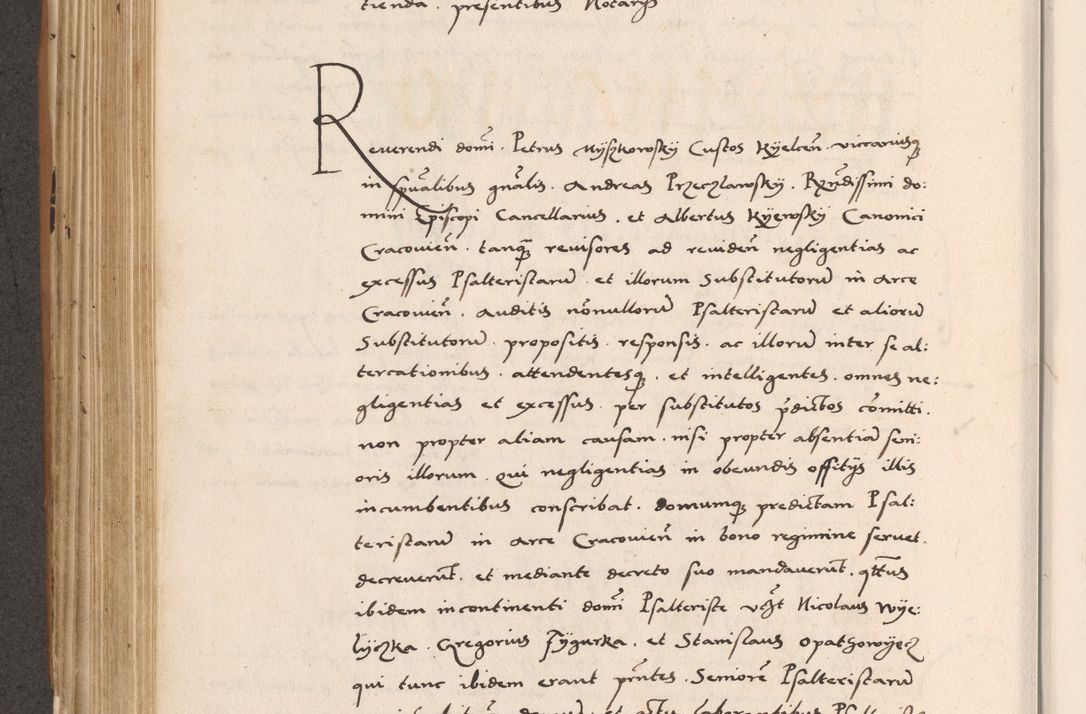 tienda . presentibus Notarijs
Reverendi domī . Petrus Myszkowsky Custos Kyelceñ . vicariusq
in spūalibus gnālis . Andreas Przeczlawsky . Rxndissimi do:
mini Episcopi Cancellarius . et Albertus Kyewsky Canonici
Cracovieñ . tanq̄ revisores ad revideñ negligentias ac
excessus Psalteristarū et illorum Substitutorū in Arce
Cracovieñ . Auditis nōnullorū Psalteristarū et aliorū
Substitutorū . propositis . responsis . ac illorū inter se al:
tercationibus . attendentesq . et intelligentes . omnes ne:
gligentias et excessus . per substitutos p̄dictos cōmitti .
non propter aliam causam . nisi propter absentiā seni:
oris illorum . qui negligentias in obeundis offitijs illis
incumbentibus conscribat . domumq predictam Psal:
teristarū in Arce Cracovieñ in bono regimine servet .
decreverūt . et mediante decreto suo mandaverūt . qttus
ibidem incontinenti domī Psalteriste vczt Nicolaus Wye:
lyczka . Gregorius Zygurka . et Stanislaus Opathowyecz
qui tunc ibidem erant pñtes . Seniorē Psalteristarū